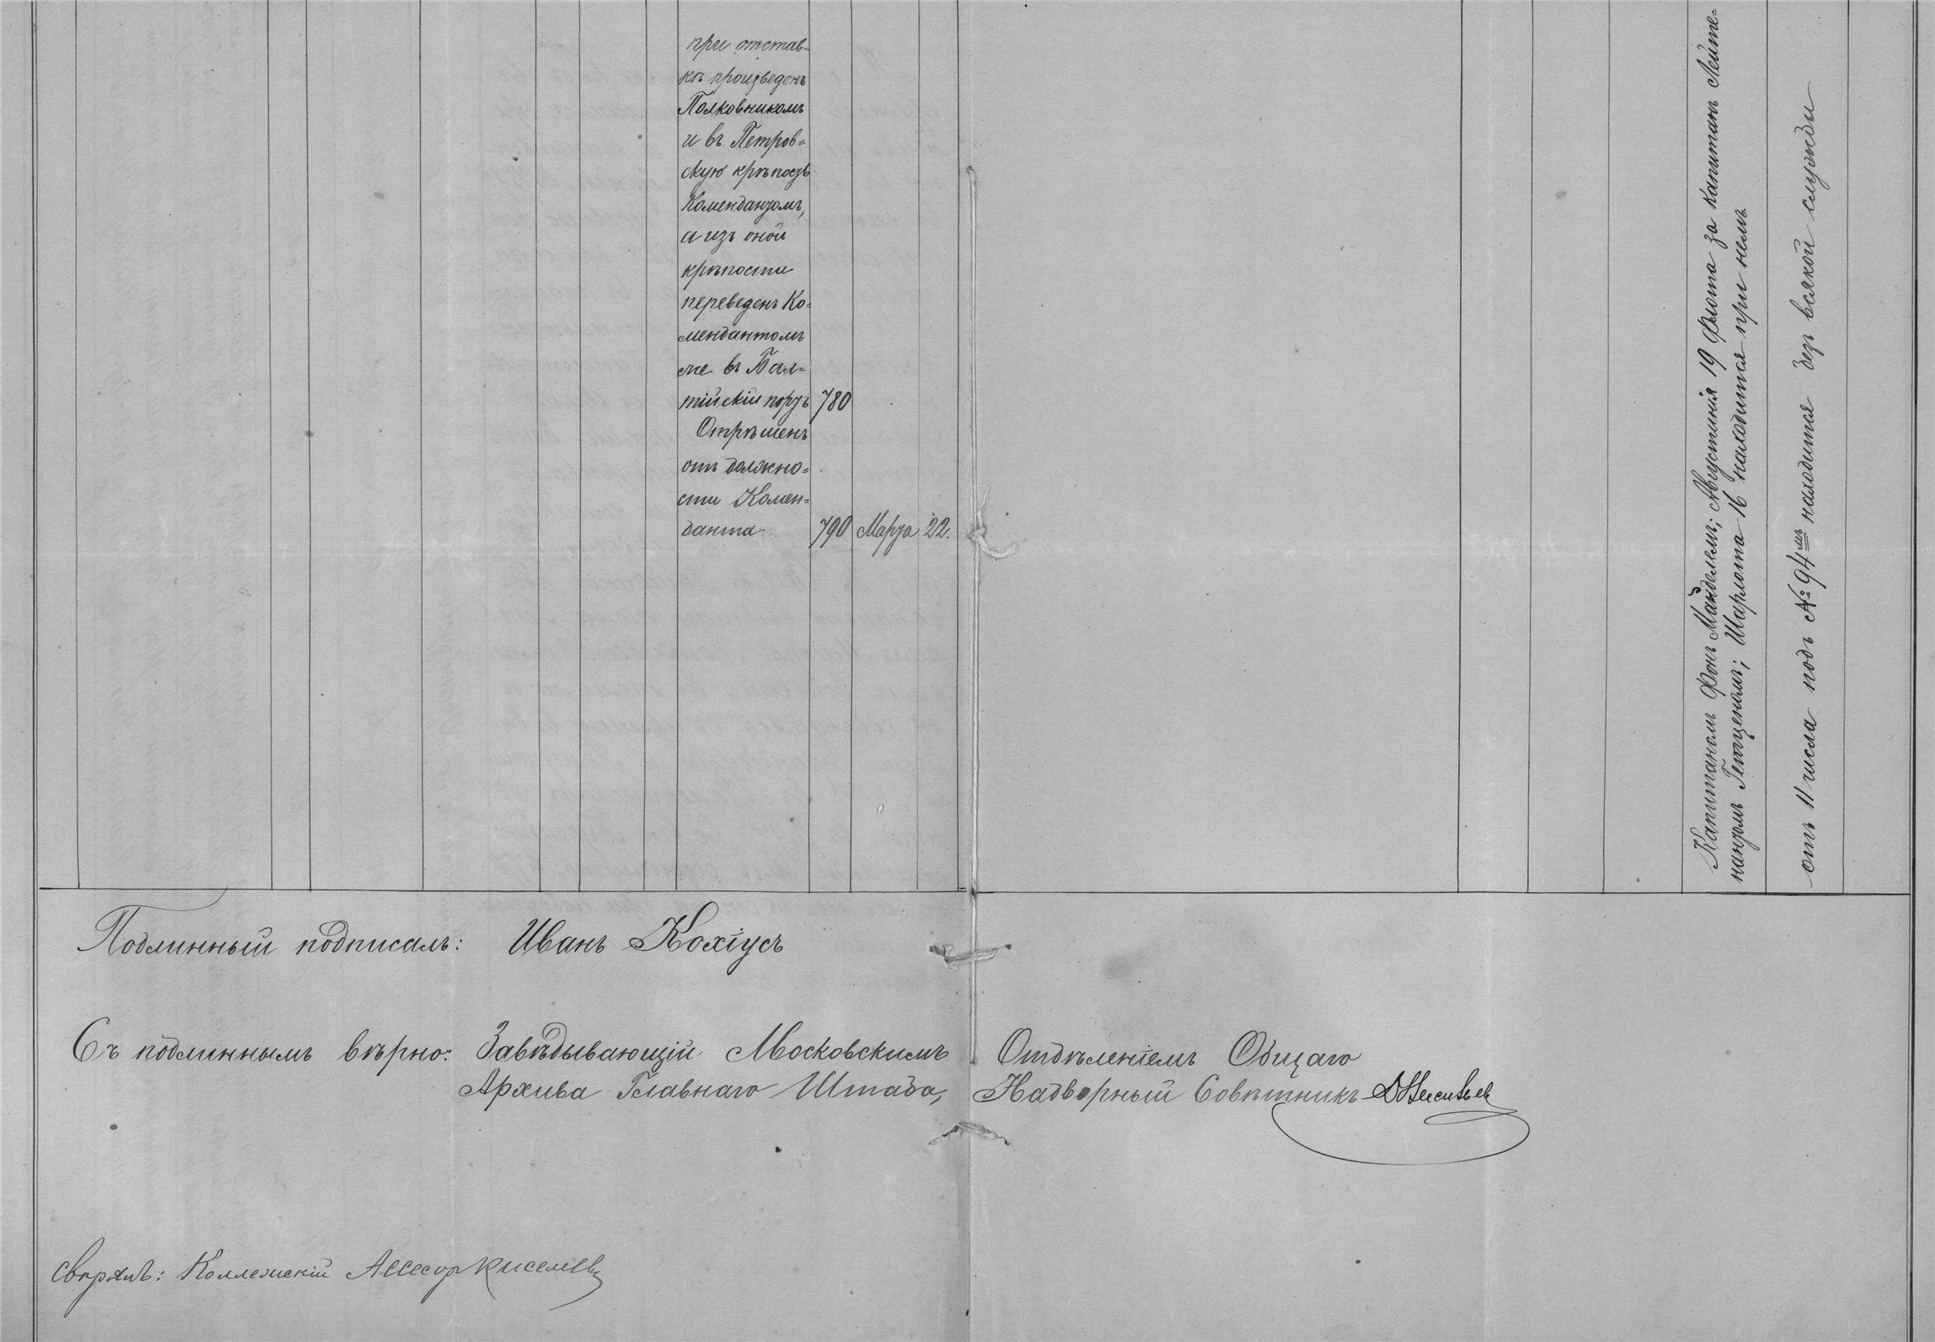 при отстав-
кѣ произведенъ
Полковникомъ
и въ Петров-
скую крѣпость
Комендантомъ,
а изъ оной
крѣпости
переведенъ Ко-
мендантомъ
же въ Бал-
тійскій портъ 780
Отрѣшенъ
отъ должно-
сти Комен-
данта 790 Марта 22.
Капитаномъ Фонъ Майделемъ; Августиния 19 Флота за Капитанъ Лейте-
нантомъ Гетценомъ; Шарлота 16 находится при немъ
отъ 11 числа подъ № 94мъ находится безъ всякой службы
Подлинный подписалъ: Иванъ Кохіусъ
Съ подлиннымъ вѣрно: Завѣдывающій Московскимъ Отдѣленіемъ Общаго
Архива Главнаго Штаба, Надворный Совѣтникъ
Свѣрялъ: Коллежскій Ассесоръ Киселевъ